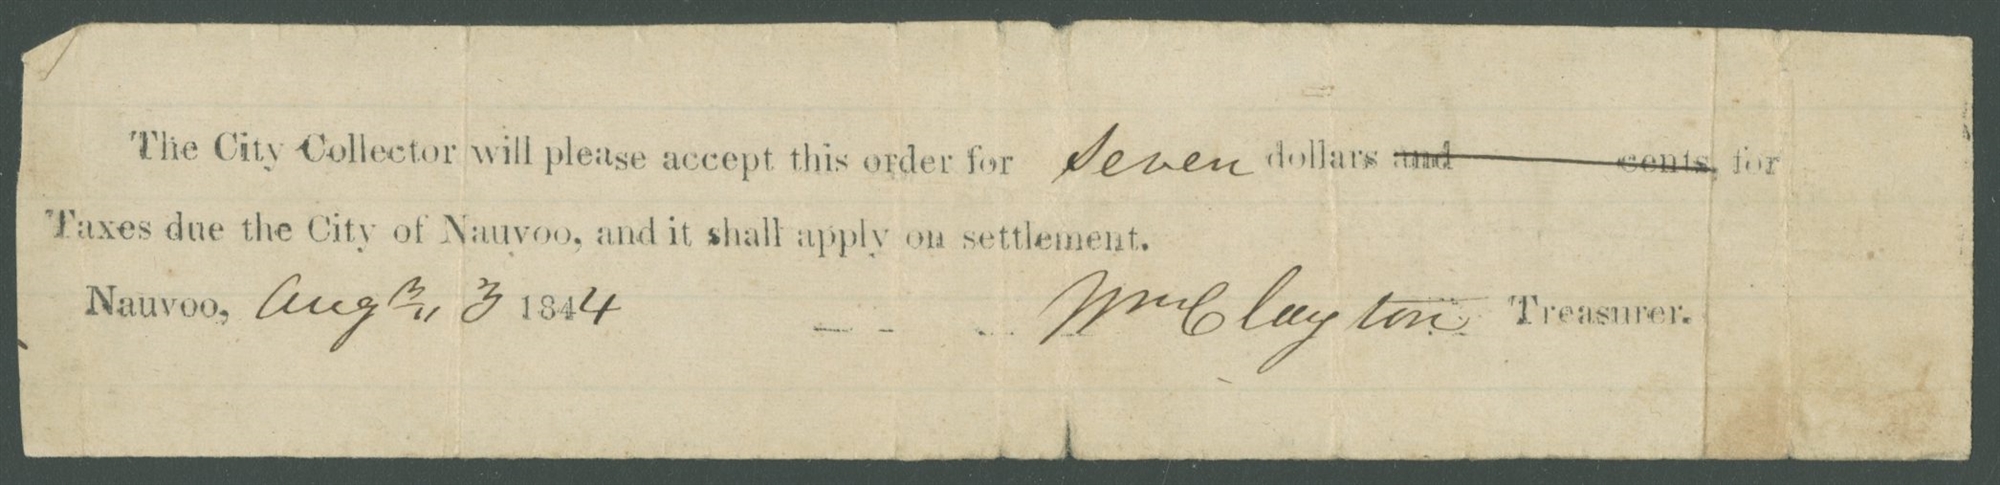 The City Collector will please accept this order for seven dollars and cents, for
Taxes due the City of Nauvoo, and it shall apply on settlement.
Nauvoo, Aug 3 1844 Wm Clayton Treasurer.